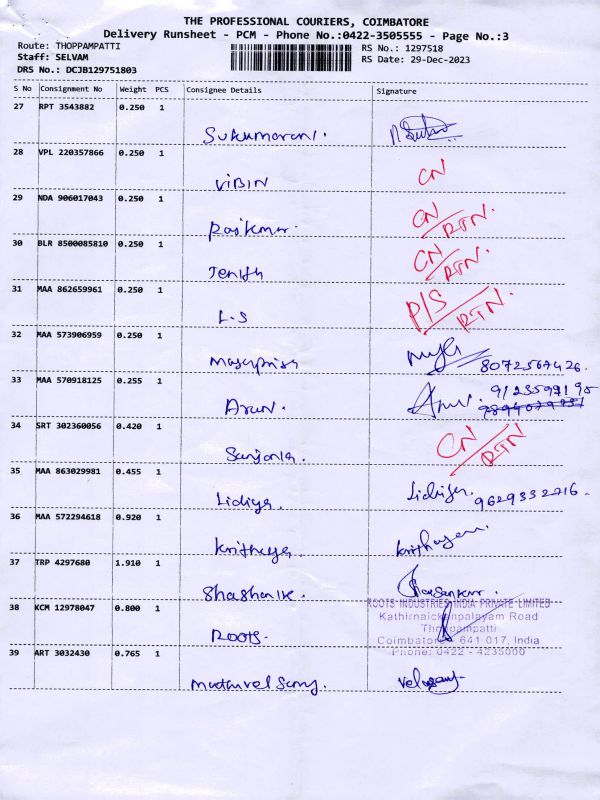 THE PROFESSIONAL COURIERS, COIMBATORE
Delivery Runsheet - PCM - Phone No.:0422-3505555 - Page No.:3
Route: THOPPAMPATTI
RS No.: 1297518
Staff: SELVAM
RS Date: 29-Dec-2023
DRS No.: DCJB129751803
S No Consignment No Weight PCS Consignee Details Signature
27 RPT 3543882 0.250 1
Sukumarani.
28 VPL 220357866 0.250 1
ViBIN CN
29 NDA 906017043 0.250 1
Rajkumar. CN/RTN.
30 BLR 8500085810 0.250 1
Jenith CN/RTN.
31 MAA 862659961 0.250 1
L.S P/S RTN.
32 MAA 573906959 0.250 1
8072567426.
33 MAA 570918125 0.255 1
Arun.
34 SRT 302360056 0.420 1
CN/RTN
35 MAA 863029981 0.455 1
Lidiya. 9629332716.
36 MAA 572294618 0.920 1
Krithiga.
37 TRP 4297680 1.910 1
Shashank.
38 KCM 12978047 0.800 1
ROOTS INDUSTRIES INDIA PRIVATE LIMITED
Kathirnaickenpalayam Road
Thoppampatti
Roots.
Coimbatore - 641 017, India
Phone: 0422 - 4235000
39 ART 3032430 0.765 1
Muthuvel Samy.